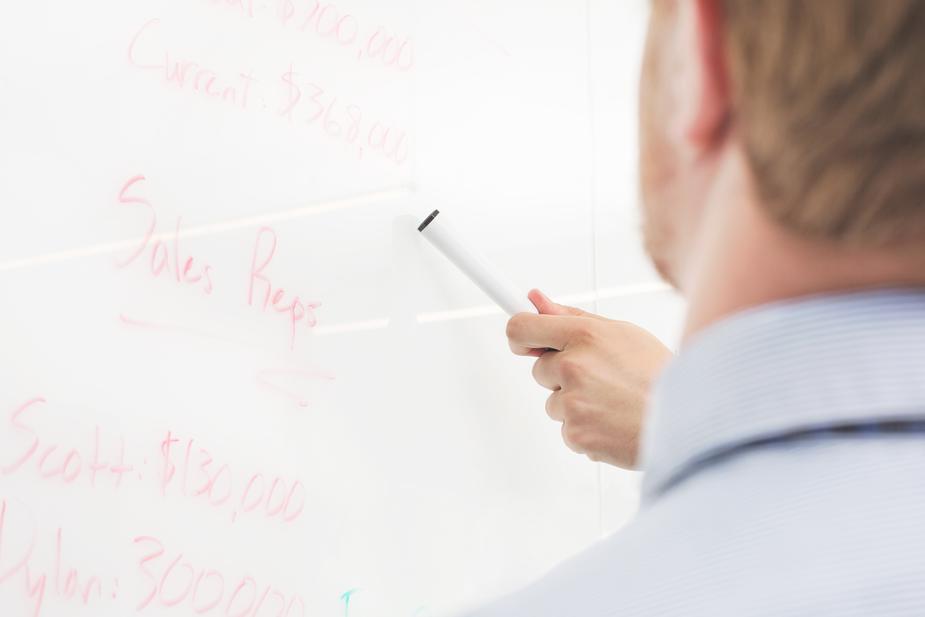 $700,000
Current: $368,000
Sales Reps
Scott: $130,000
Dylan: 300000